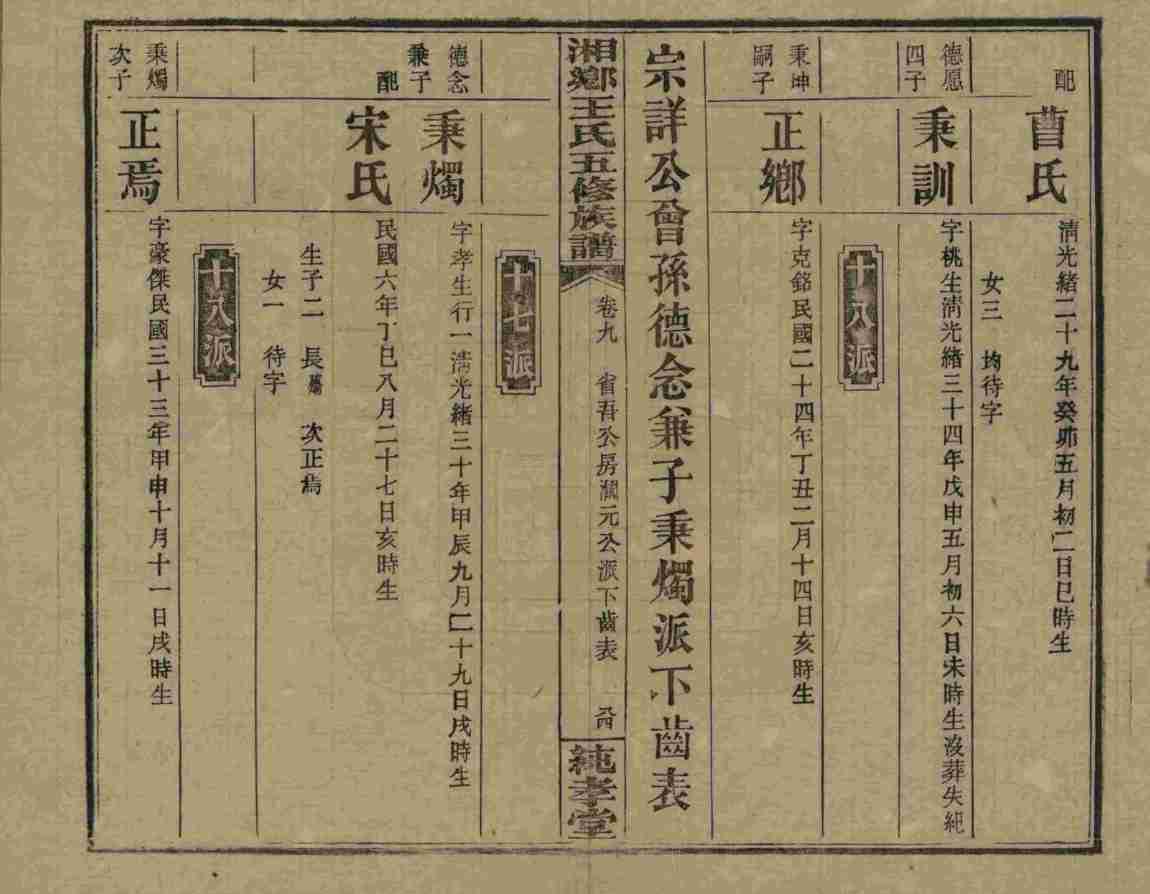 配
曹氏
清光緒二十九年癸卯五月初二日巳時生
女三　均待字
德愿
四子
秉訓
字桃生清光緒三十四年戊申五月初六日未時生沒葬失紀
十八派
秉坤
嗣子
正鄉
字克銘民國二十四年丁丑二月十四日亥時生
宗詳公曾孫德念兼子秉燭派下齒表
湘鄉王氏五修族譜
卷九　省吾公房潤元公派下齒表
純孝堂
十七派
德念
兼子
秉燭
字孝生行一清光緒三十年甲辰九月二十九日戌時生
配
宋氏
民國六年丁巳八月二十七日亥時生
生子二　長　次正焉
女一　待字
十八派
秉燭
次子
正焉
字豪傑民國三十三年甲申十月十一日戌時生